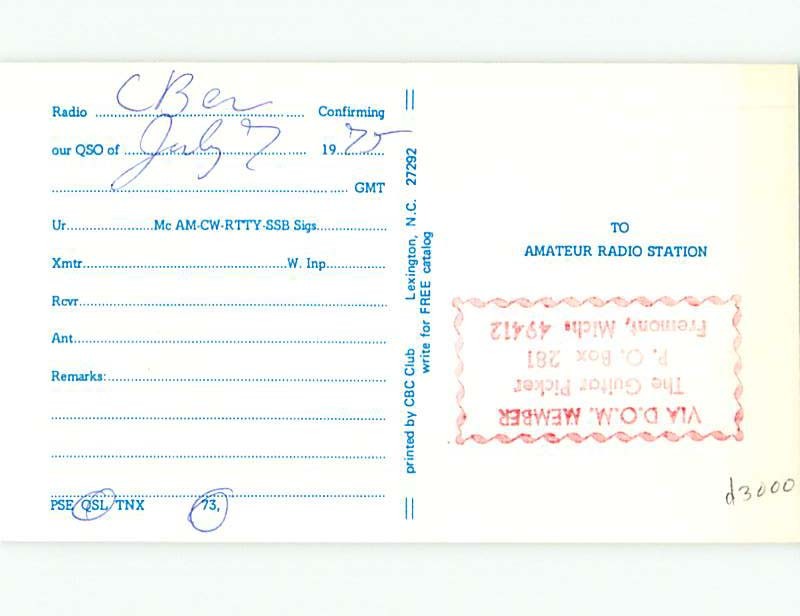 Radio CBer Confirming
our QSO of July 7 1975
GMT
Ur Mc AM-CW-RTTY-SSB Sigs
Xmtr W. Inp
Rcvr
Ant
Remarks:
PSE QSL TNX 73,
printed by CBC Club Lexington, N.C. 27292
write for FREE catalog
TO
AMATEUR RADIO STATION
VIA D.O.M. MEMBER
The Guitar Picker
P. O. Box 281
Fremont, Mich. 49412
d3000